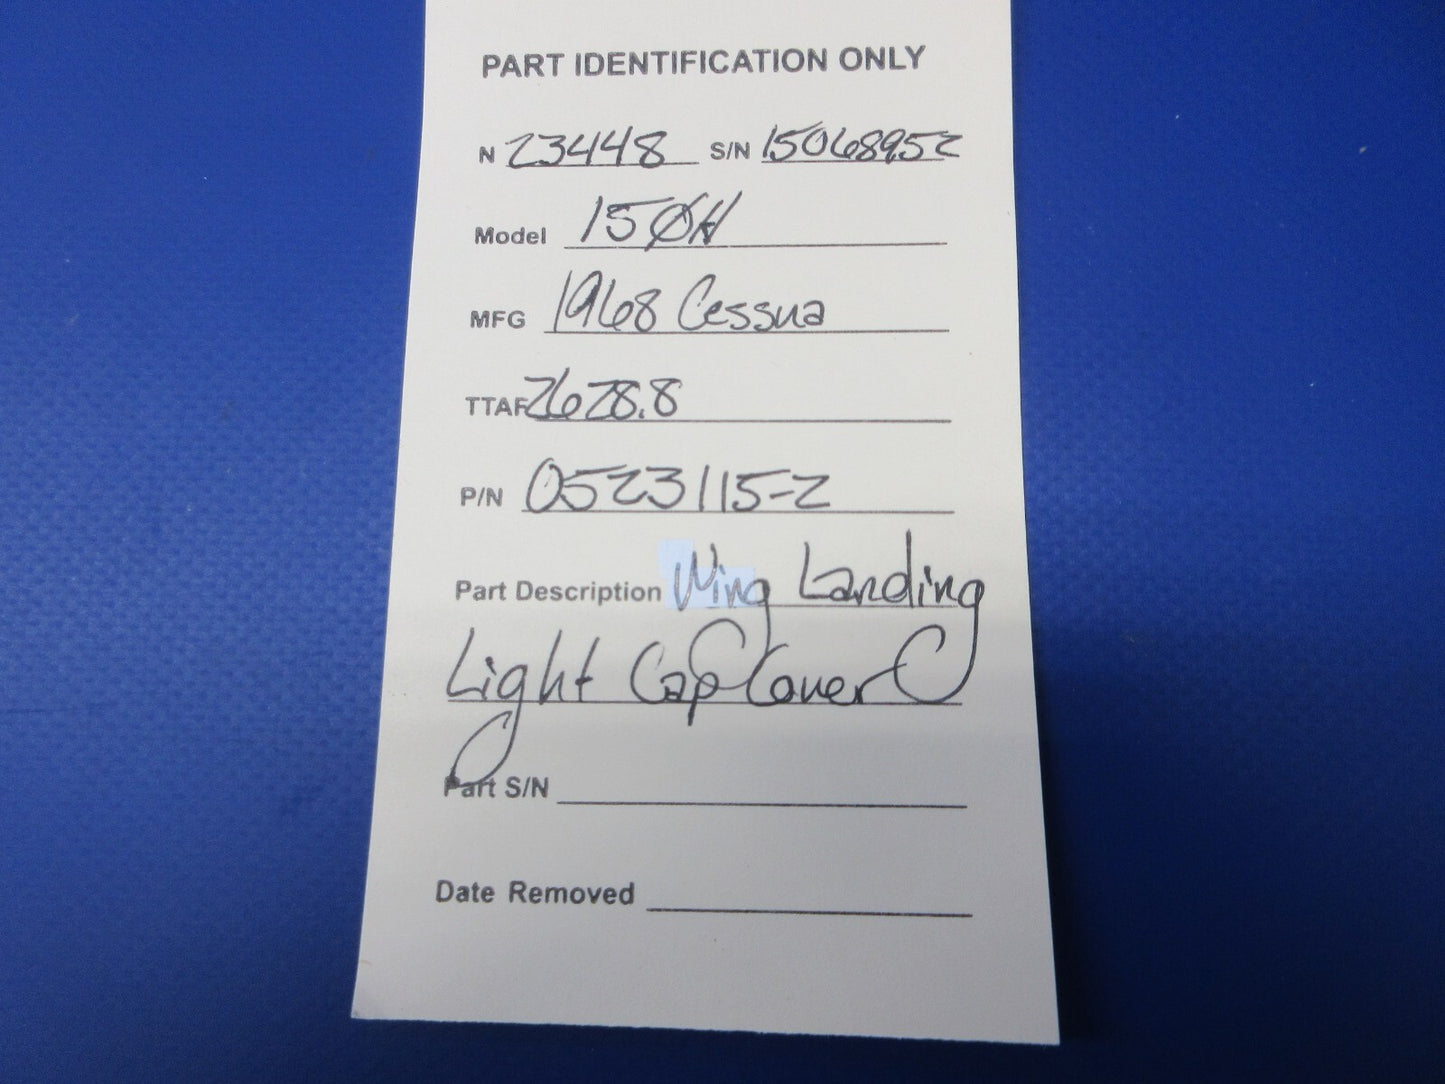 PART IDENTIFICATION ONLY
N 23448 S/N 15068952
Model 150H
MFG 1968 Cessna
TTAF 2628.8
P/N 0523115-2
Part Description Wing Landing
Light Cap Cover
Part S/N
Date Removed